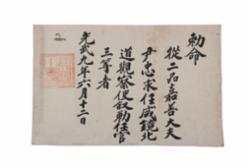 勅命
從二品嘉善大夫
尹忠求任咸鏡北
道觀察使叙勅任官
三等者
光武九年六月十二日